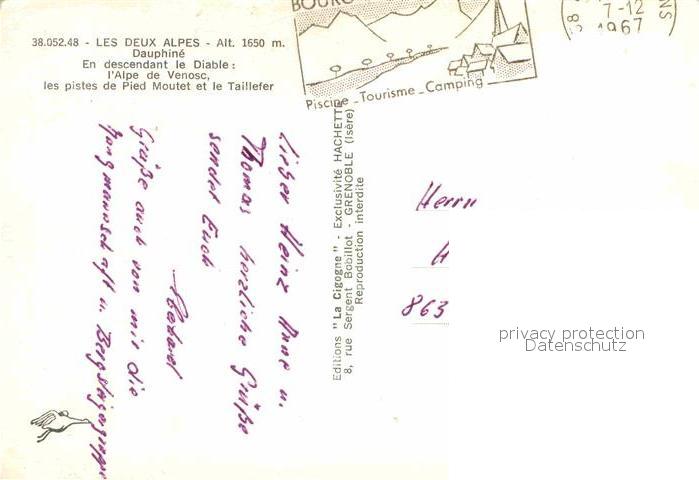 38.052.48 - LES DEUX ALPES - Alt. 1650 m.
Dauphiné
En descendant le Diable :
l'Alpe de Venosc,
les pistes de Pied Moutet et le Taillefer
BOURG
Piscine - Tourisme - Camping
7-12
1967
NS
Lieber Heinz Anne u.
Thomas herzliche Grüße
sendet Euch
Grüße auch von mir die
Jungmannschaft u. Bergsteigergruppe
Editions "La Cigogne" - Exclusivité HACHETTE
8, rue Sergent Bobillot - GRENOBLE (Isère)
Reproduction interdite
Herrn
H
863
privacy protection
Datenschutz